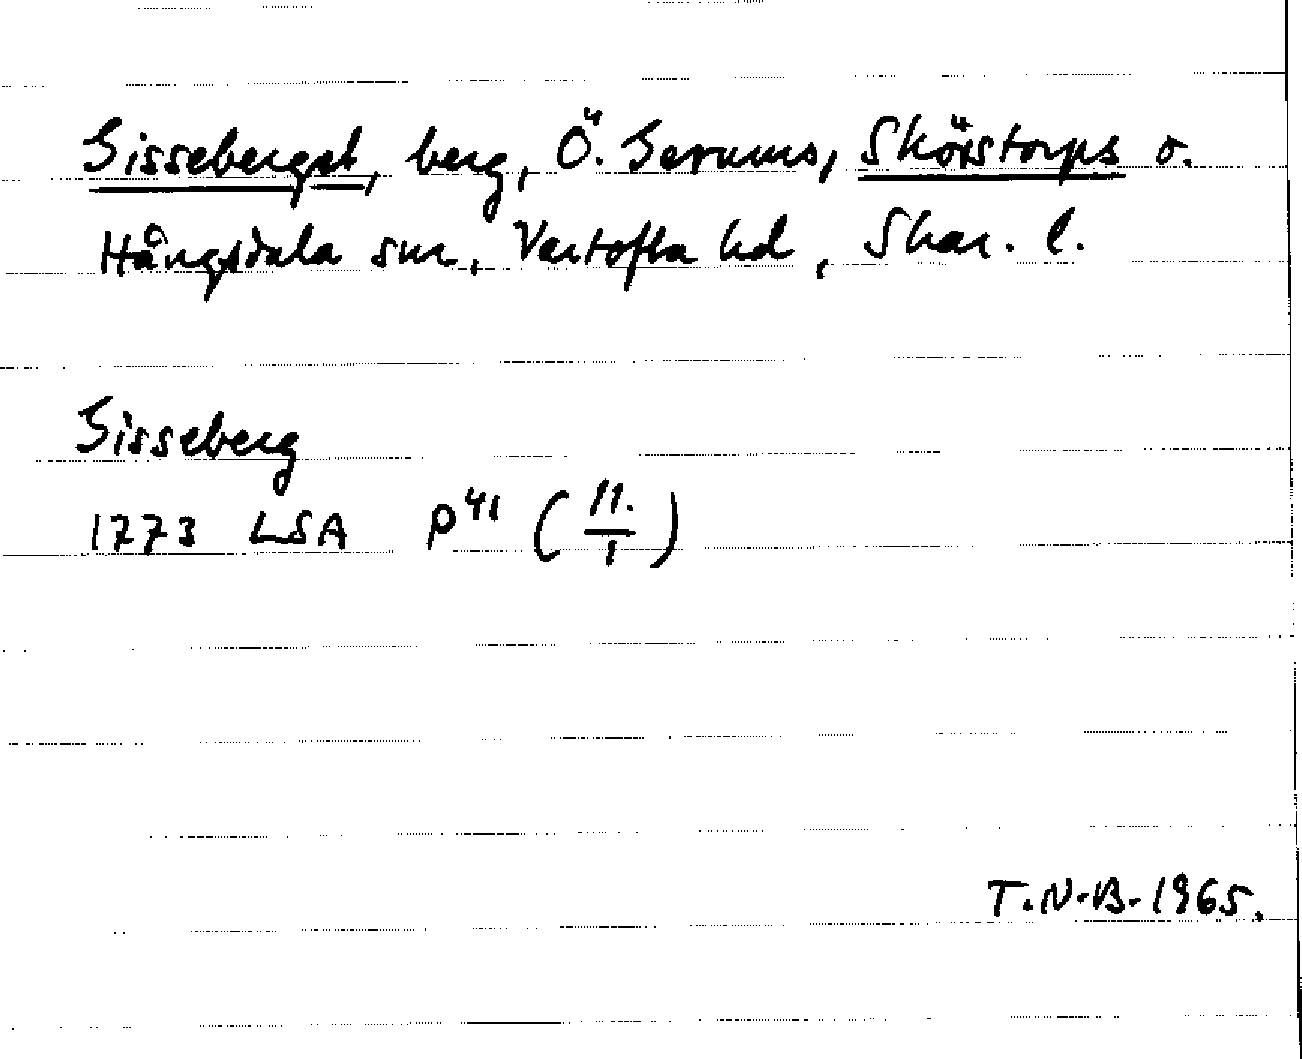 Gisseberget, berg, Ö. Gerums, Skörstorps o.
Hångsdala snr, Vartofta hd, Skar. l.
Gisseberg
1773 LSA P⁴¹ (11./1)
T.N-B-1965.